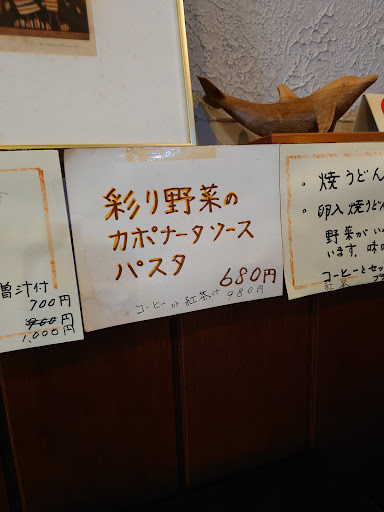 曽汁付
700円
900円
1,000円
彩り野菜の
カポナータソース
パスタ
680円
コーヒー or 紅茶付 980円
・焼うどん
・卵入焼うどん
野菜が
います。味
コーヒーとセッ
紅茶